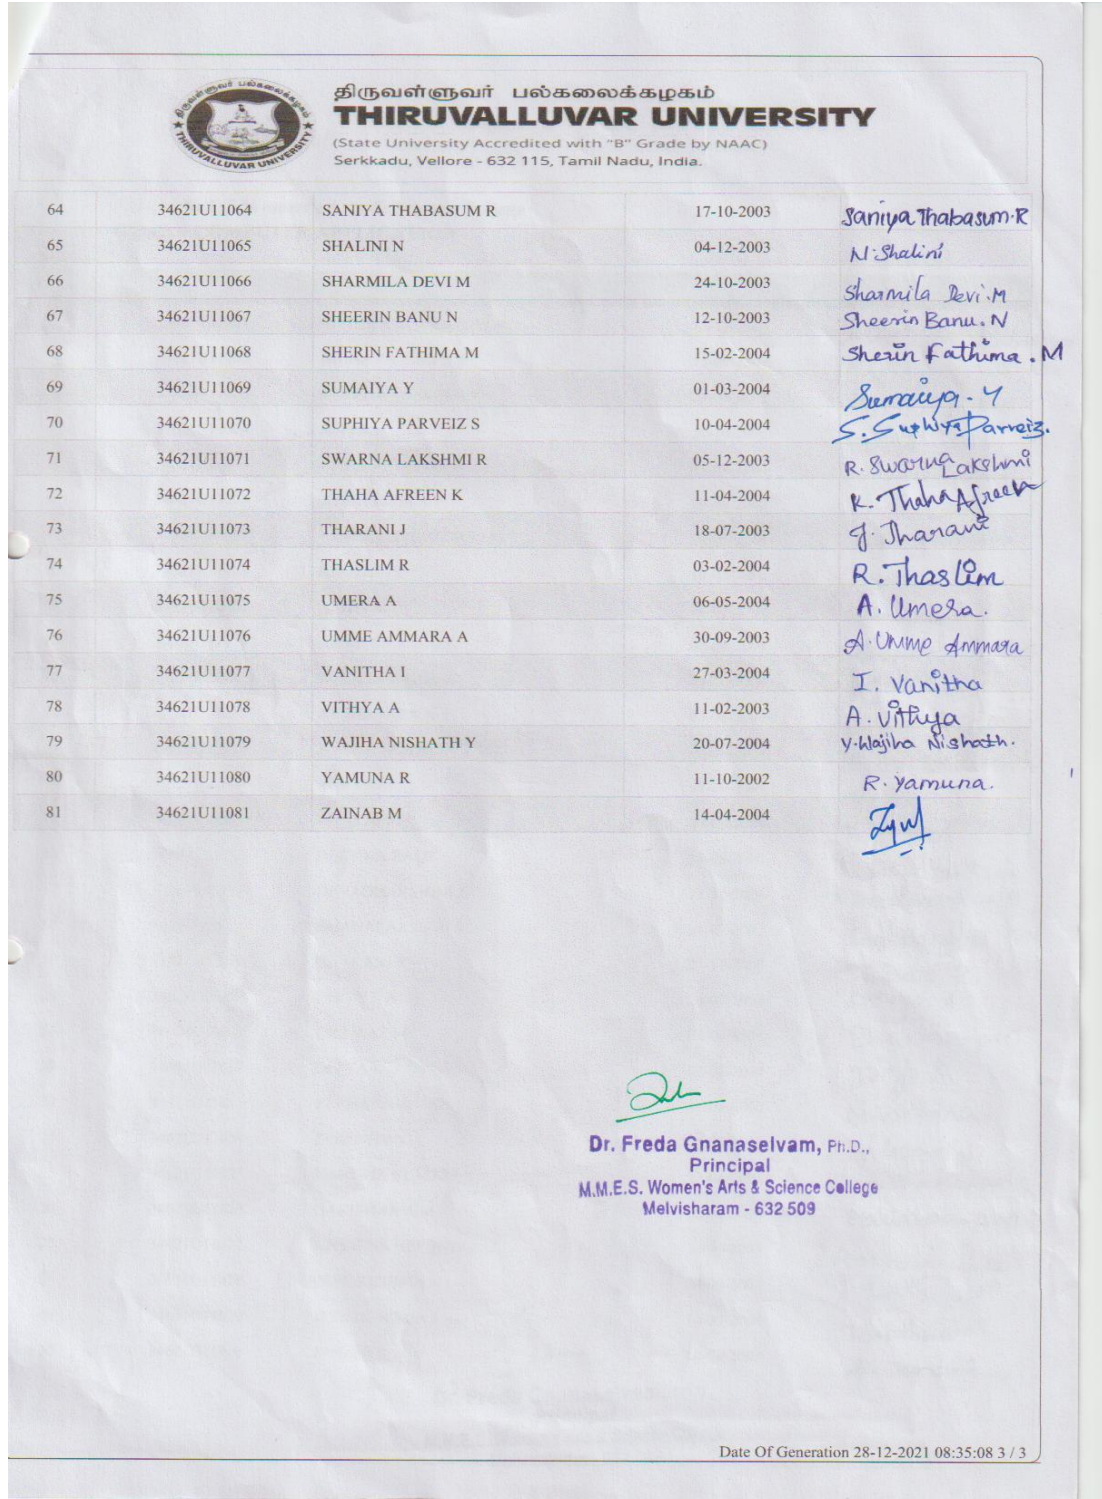 திருவள்ளுவர் பல்கலைக்கழகம்
THIRUVALLUVAR UNIVERSITY
(State University Accredited with "B" Grade by NAAC)
Serkkadu, Vellore - 632 115, Tamil Nadu, India.
திருவள்ளுவர் பல்கலைக்கழகம்
THIRUVALLUVAR UNIVERSITY
64 34621U11064 SANIYA THABASUM R 17-10-2003 Saniya Thabasum.R
65 34621U11065 SHALINI N 04-12-2003 N.Shalini
66 34621U11066 SHARMILA DEVI M 24-10-2003 Sharmila Devi.M
67 34621U11067 SHEERIN BANU N 12-10-2003 Sheerin Banu.N
68 34621U11068 SHERIN FATHIMA M 15-02-2004 Sherin Fathima.M
69 34621U11069 SUMAIYA Y 01-03-2004 Sumaiya.Y
70 34621U11070 SUPHIYA PARVEIZ S 10-04-2004 S.Suphiya Parveiz.
71 34621U11071 SWARNA LAKSHMI R 05-12-2003 R.Swarna Lakshmi
72 34621U11072 THAHA AFREEN K 11-04-2004 K.Thaha Afreen
73 34621U11073 THARANI J 18-07-2003 J.Tharani
74 34621U11074 THASLIM R 03-02-2004 R.Thaslim
75 34621U11075 UMERA A 06-05-2004 A.Umera.
76 34621U11076 UMME AMMARA A 30-09-2003 A.Umme Ammara
77 34621U11077 VANITHA I 27-03-2004 I.Vanitha
78 34621U11078 VITHYA A 11-02-2003 A.Vithya
79 34621U11079 WAJIHA NISHATH Y 20-07-2004 Y.Wajiha Nishath.
80 34621U11080 YAMUNA R 11-10-2002 R.Yamuna.
81 34621U11081 ZAINAB M 14-04-2004
Dr. Freda Gnanaselvam, Ph.D.,
Principal
M.M.E.S. Women's Arts & Science College
Melvisharam - 632 509
Date Of Generation 28-12-2021 08:35:08 3 / 3